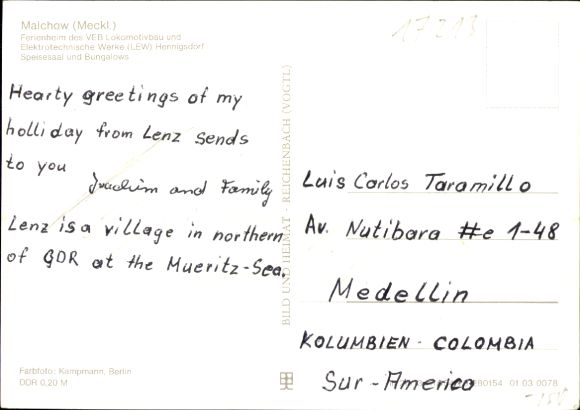 Malchow (Meckl.)
Ferienheim des VEB Lokomotivbau und
Elektrotechnische Werke (LEW) Hennigsdorf
Speisesaal und Bungalows
17213
Hearty greetings of my
holliday from Lenz sends
to you
Joachim and Family
Lenz is a village in northern
of GDR at the Mueritz-Sea.
BILD UND HEIMAT · REICHENBACH (VOGTL)
Luis Carlos Taramillo
Av. Nutibara #e 1-48
Medellin
KOLUMBIEN - COLOMBIA
Sur - America
Farbfoto: Kampmann, Berlin
DDR 0,20 M
80154 01 03 0078